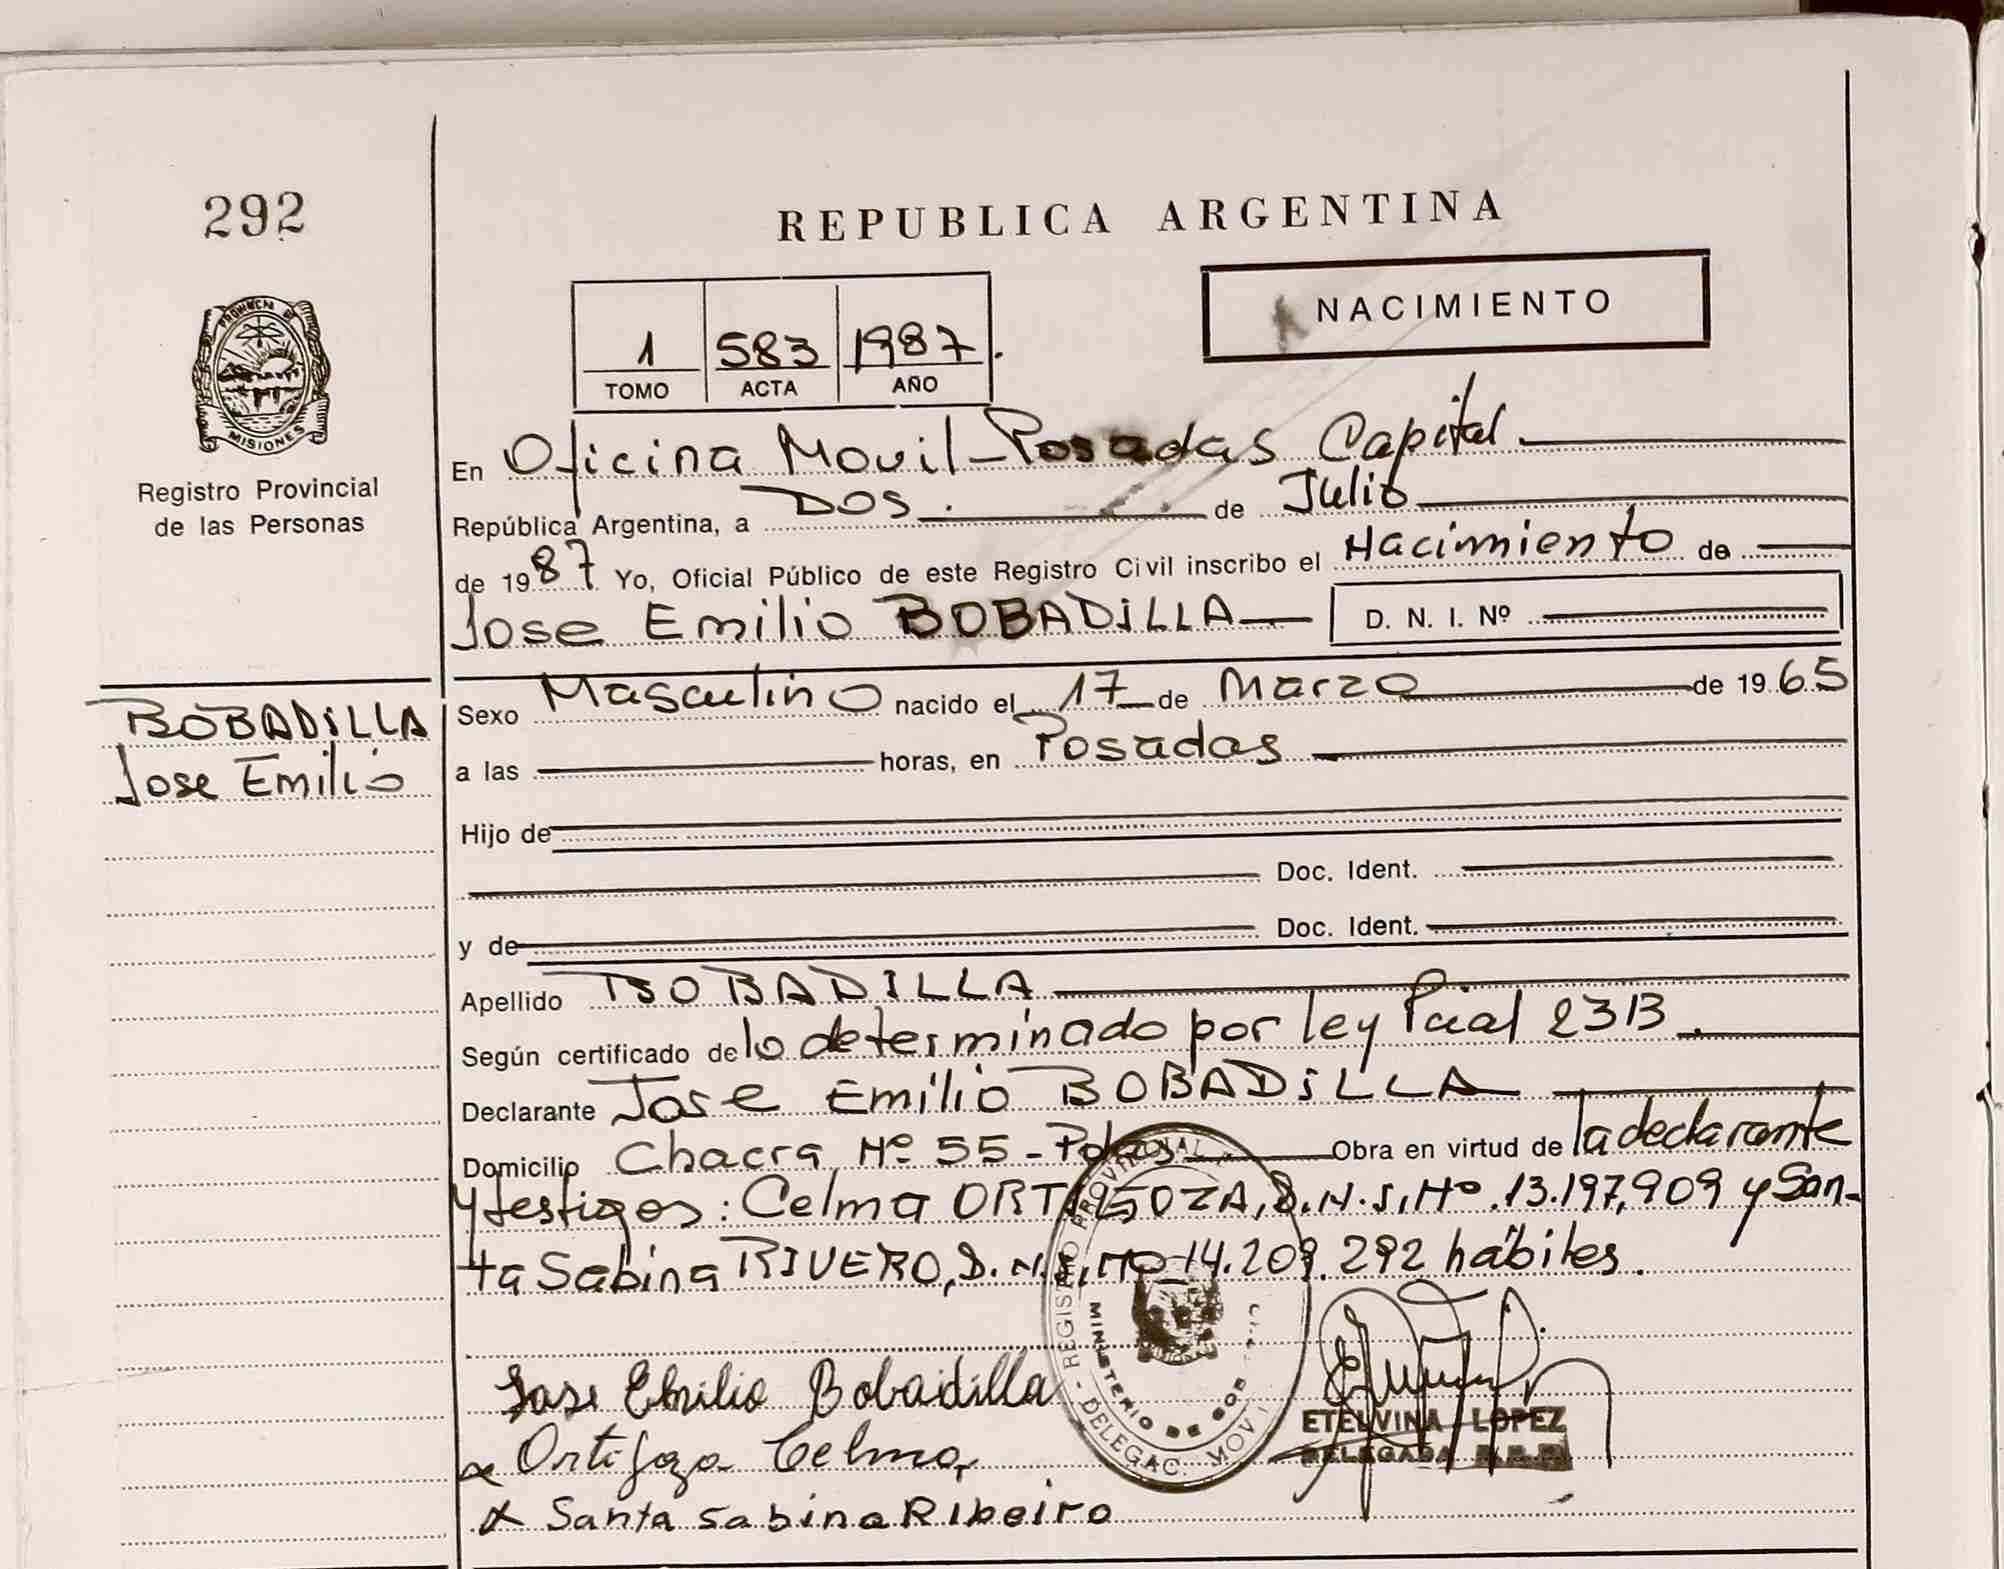 292
PROVINCIA DE
MISIONES
Registro Provincial
de las Personas
BOBADILLA
Jose Emilio
REPUBLICA ARGENTINA
NACIMIENTO
1 583 1987.
TOMO ACTA AÑO
En Oficina Movil-Posadas Capital.
República Argentina, a DOS. de Julio
de 1987 Yo, Oficial Público de este Registro Civil inscribo el Nacimiento de
Jose Emilio BOBADILLA D. N. I. Nº
Sexo Masculino nacido el 17 de Marzo de 1965
a las horas, en Posadas
Hijo de
Doc. Ident.
y de Doc. Ident.
Apellido BOBADILLA
Según certificado de lo determinado por ley Pcial 2313.
Declarante Jose Emilio BOBADILLA
Domicilio Chacra Nº 55 - Pdas Obra en virtud de la declarante
y testigos: Celma ORTIGOZA, D.N.I, Nº 13.197,909 y San-
ta Sabina RIVERO, D.N.I, Nº 14.209.292 hábiles.
REGISTRO PROVINCIAL
MINISTERIO DE GOB
DELEGAC. MOVI
Jose Emilio Bobadilla
Ortigoza Celma
Santa Sabina Ribeiro
ETELVINA LOPEZ
DELEGADA